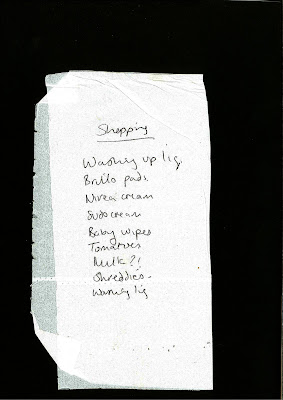 Shopping
Washing up liq.
Brillo pads
Nivea cream
Sudocream
Baby wipes
Tomatoes
Milk?!
Shreddies.
Washing liq